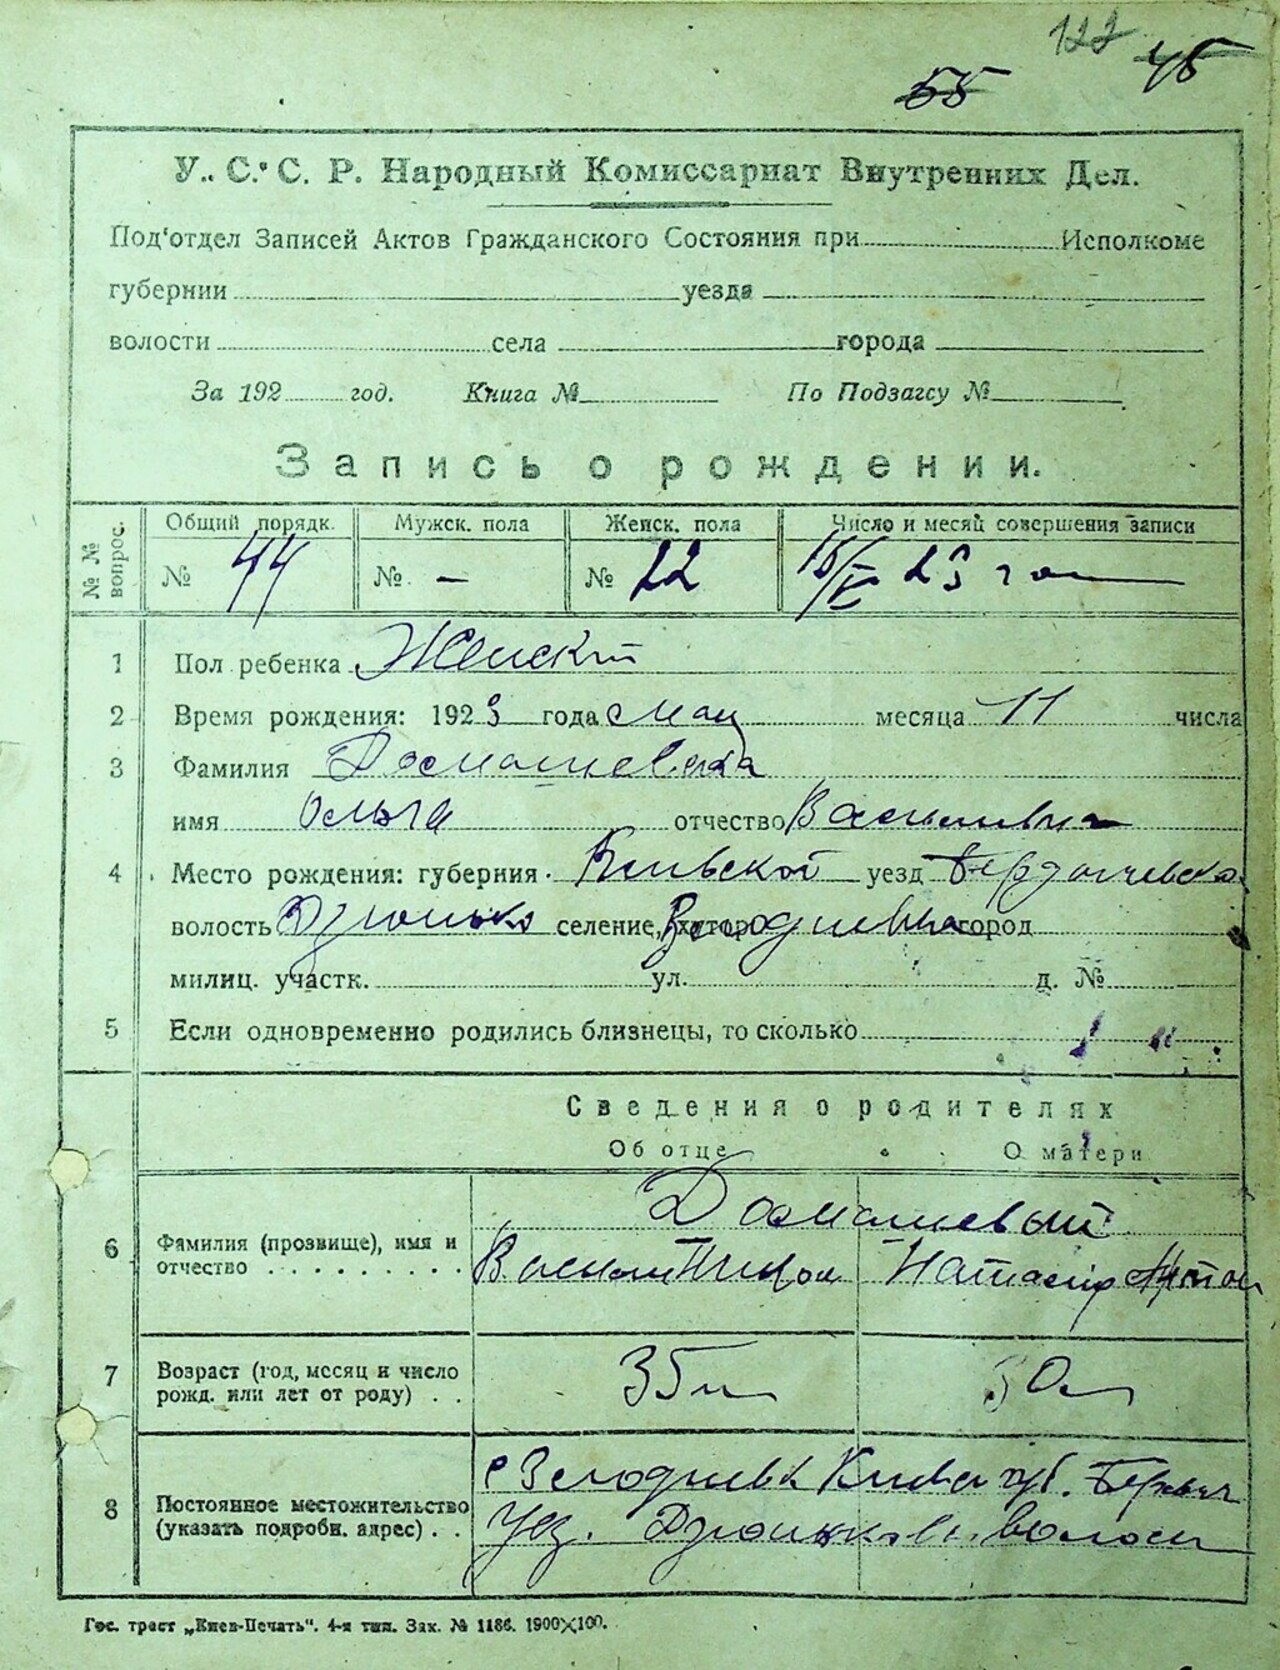 122 45
55
У.. С. С. Р. Народный Комиссариат Внутренних Дел.
Под'отдел Записей Актов Гражданского Состояния при Исполкоме
губернии уезда
волости села города
За 192 год. Книга № По Подзагсу №
Запись о рождении.
№ № вопрос. Общий порядк. Мужск. пола Женск. пола Число и месяц совершения записи
№ 44 № – № 22 15/V 23 го
1 Пол ребенка Женский
2 Время рождения: 1923 года мая месяца 11 числа
3 Фамилия Домашевска
имя Ольга отчество Васильевна
4 Место рождения: губерния Киевской уезд Бердичевско
волость Дзюнько селение, хутор город
милиц. участк. ул. д. №
5 Если одновременно родились близнецы, то сколько
Сведения о родителях
Об отце О матери
Домашевый
6 Фамилия (прозвище), имя и отчество
7 Возраст (год, месяц и число рожд. или лет от роду) 35 л 30 л
8 Постоянное местожительство (указать подробн. адрес)
Уез. Дзюньков. волости
Гос. трест „Киев-Печать“. 4-я тип. Зак. № 1186. 1900×100.